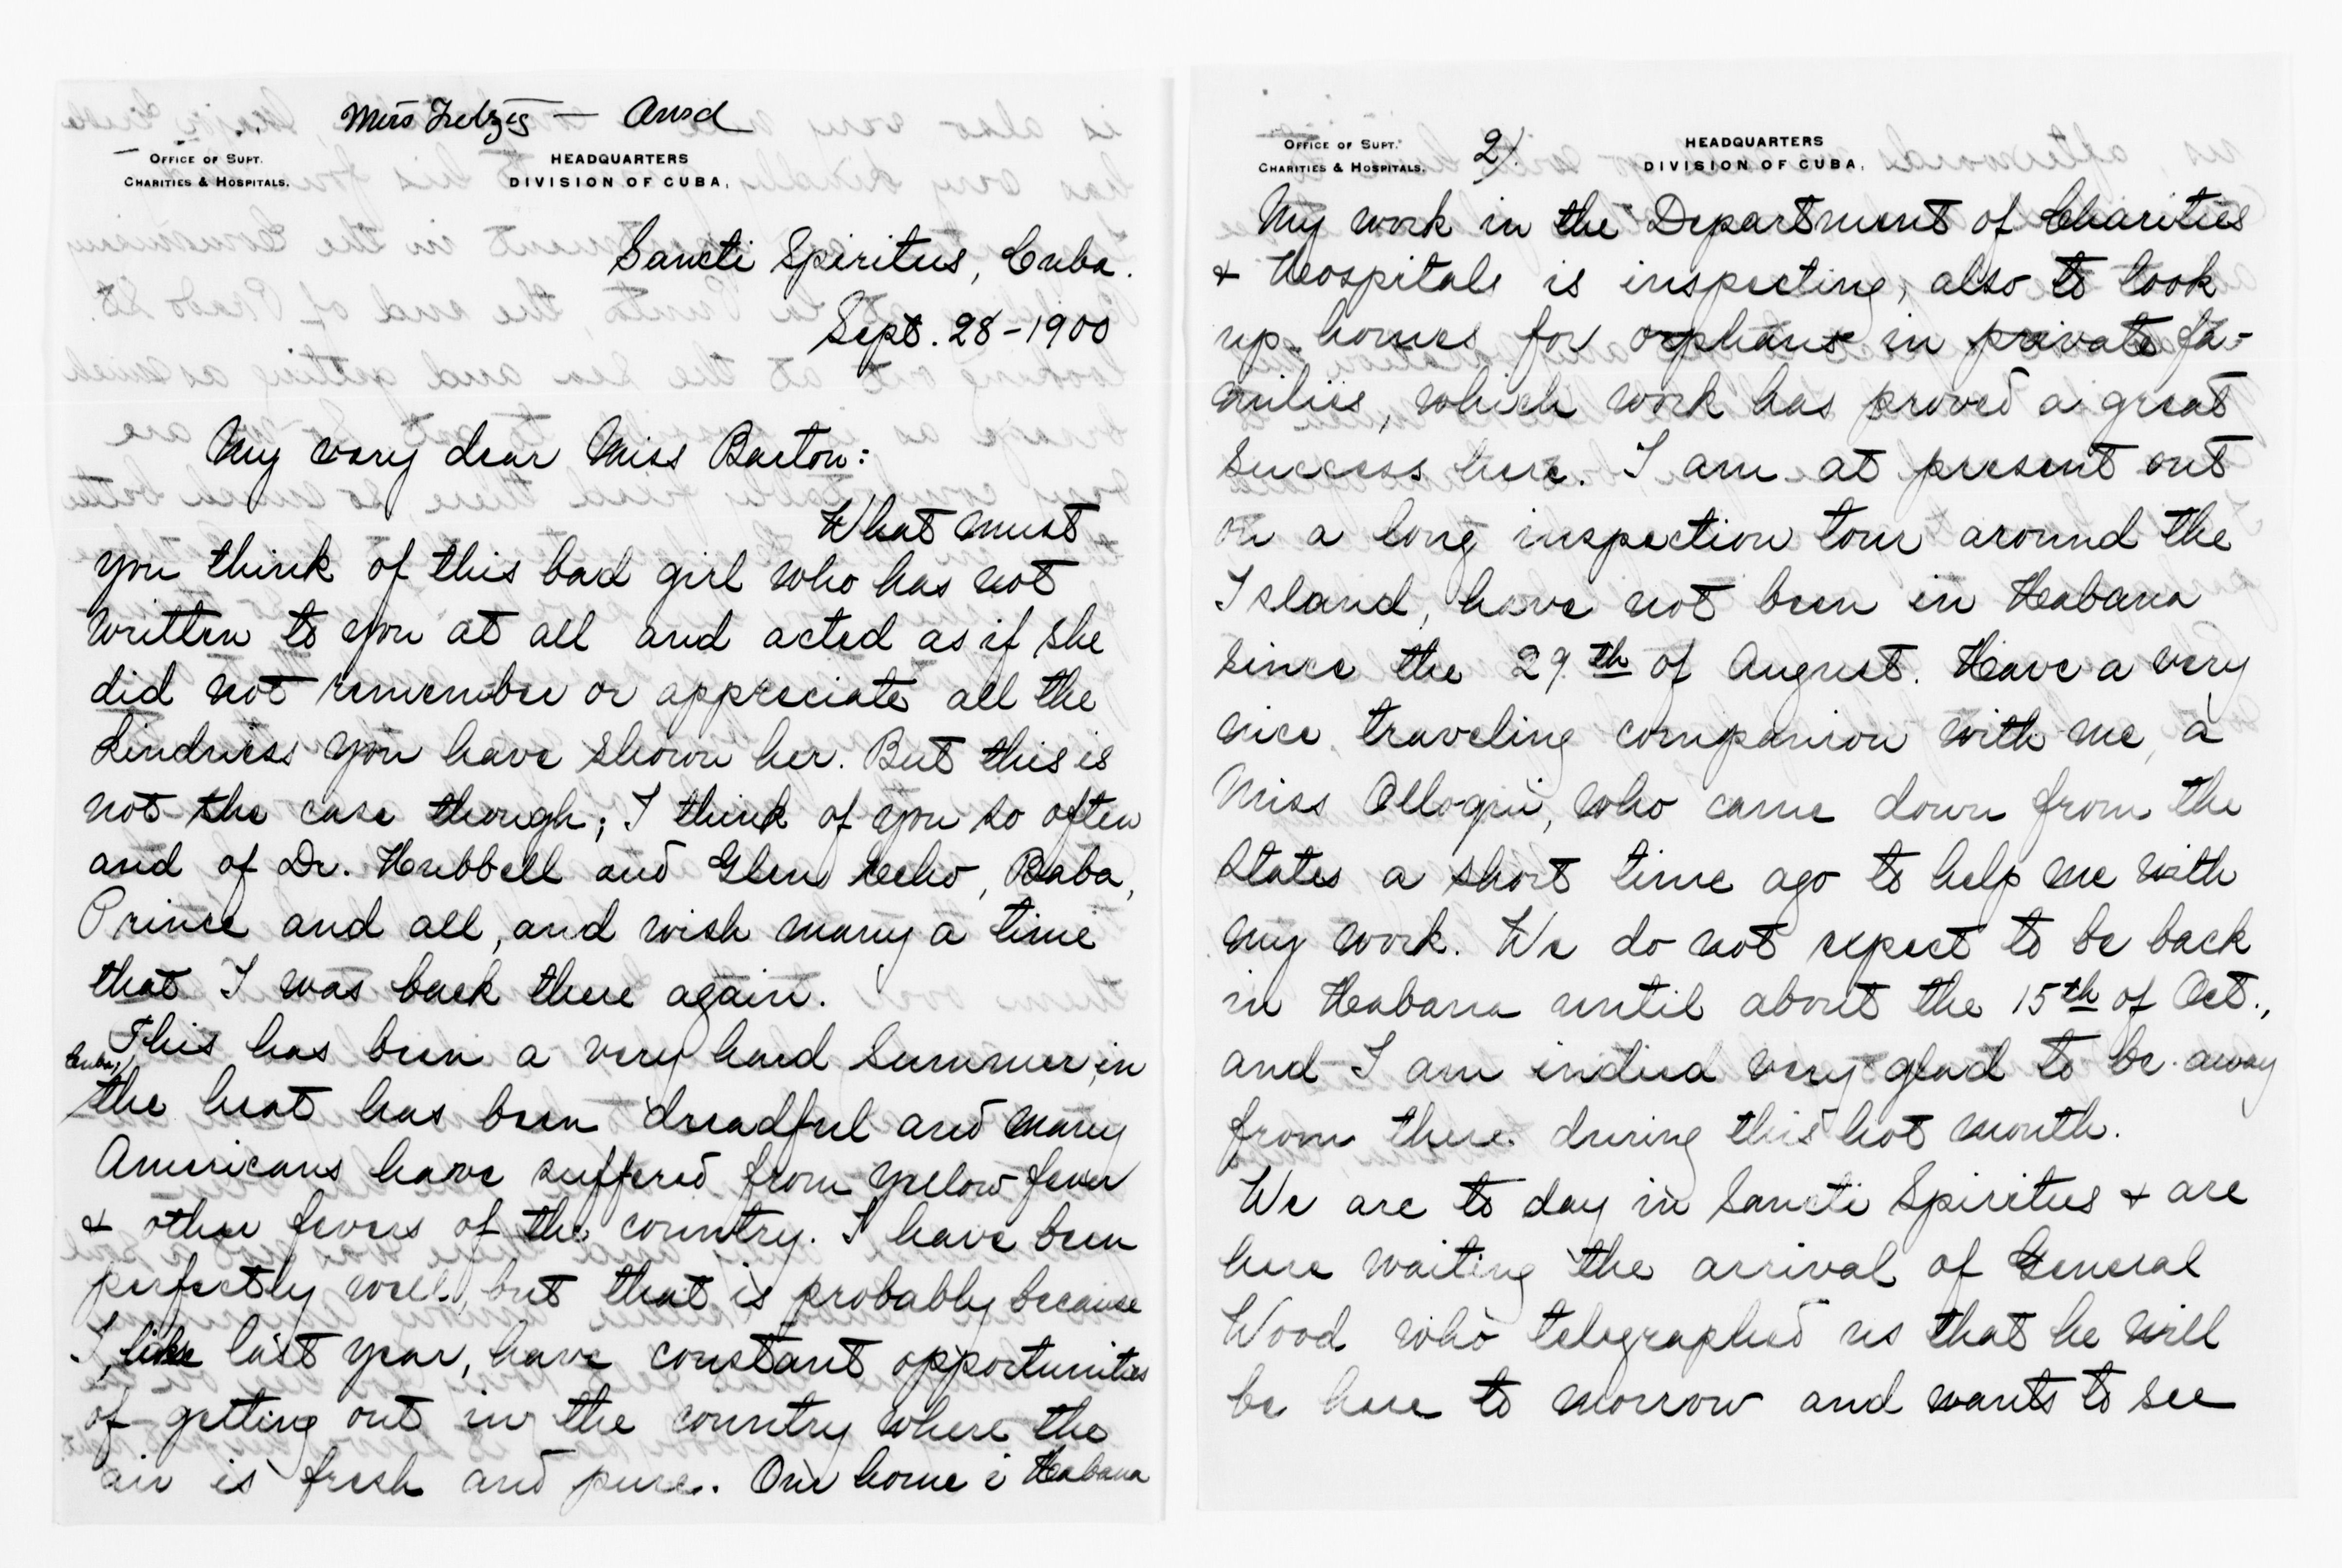 Miss — Ansd
OFFICE OF SUPT.
CHARITIES & HOSPITALS.
HEADQUARTERS
DIVISION OF CUBA,
Sancti Spiritus, Cuba.
Sept. 28-1900
My very dear Miss Barton:
What must
you think of this bad girl who has not
written to you at all and acted as if she
did not remember or appreciate all the
kindness you have shown her. But this is
not the case though; I think of you so often
and of Dr. Hubbell and Glen Echo, Baba,
Prince and all, and wish many a time
that I was back there again.
This has been a very hard Summer in
Cuba,
the heat has been dreadful and many
Americans have suffered from yellow fever
& other fevers of the country. I have been
perfectly well, but that is probably because
I, like last year, have constant opportunities
of getting out in the country where the
air is fresh and pure. Our home i Habana
OFFICE OF SUPT.
CHARITIES & HOSPITALS.
2).
HEADQUARTERS
DIVISION OF CUBA,
My work in the Department of Charities
& Hospitals is inspecting, also to look
up homes for orphans in private fa-
milies, which work has proved a great
success here. I am at present out
on a long inspection tour around the
Island, have not been in Habana
since the 29th of August. Have a very
nice traveling companion with me, a
Miss who came down from the
States a short time ago to help me with
my work. We do not expect to be back
in Habana until about the 15th of Oct.,
and I am indeed very glad to be away
from there during this hot month.
We are to day in Sancti Spiritus & are
here waiting the arrival of General
Wood who telegraphed us that he will
be here to morrow and wants to see